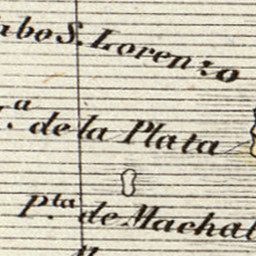 abo S. Lorenzo
.ª de la Plata
p.ta de Machal